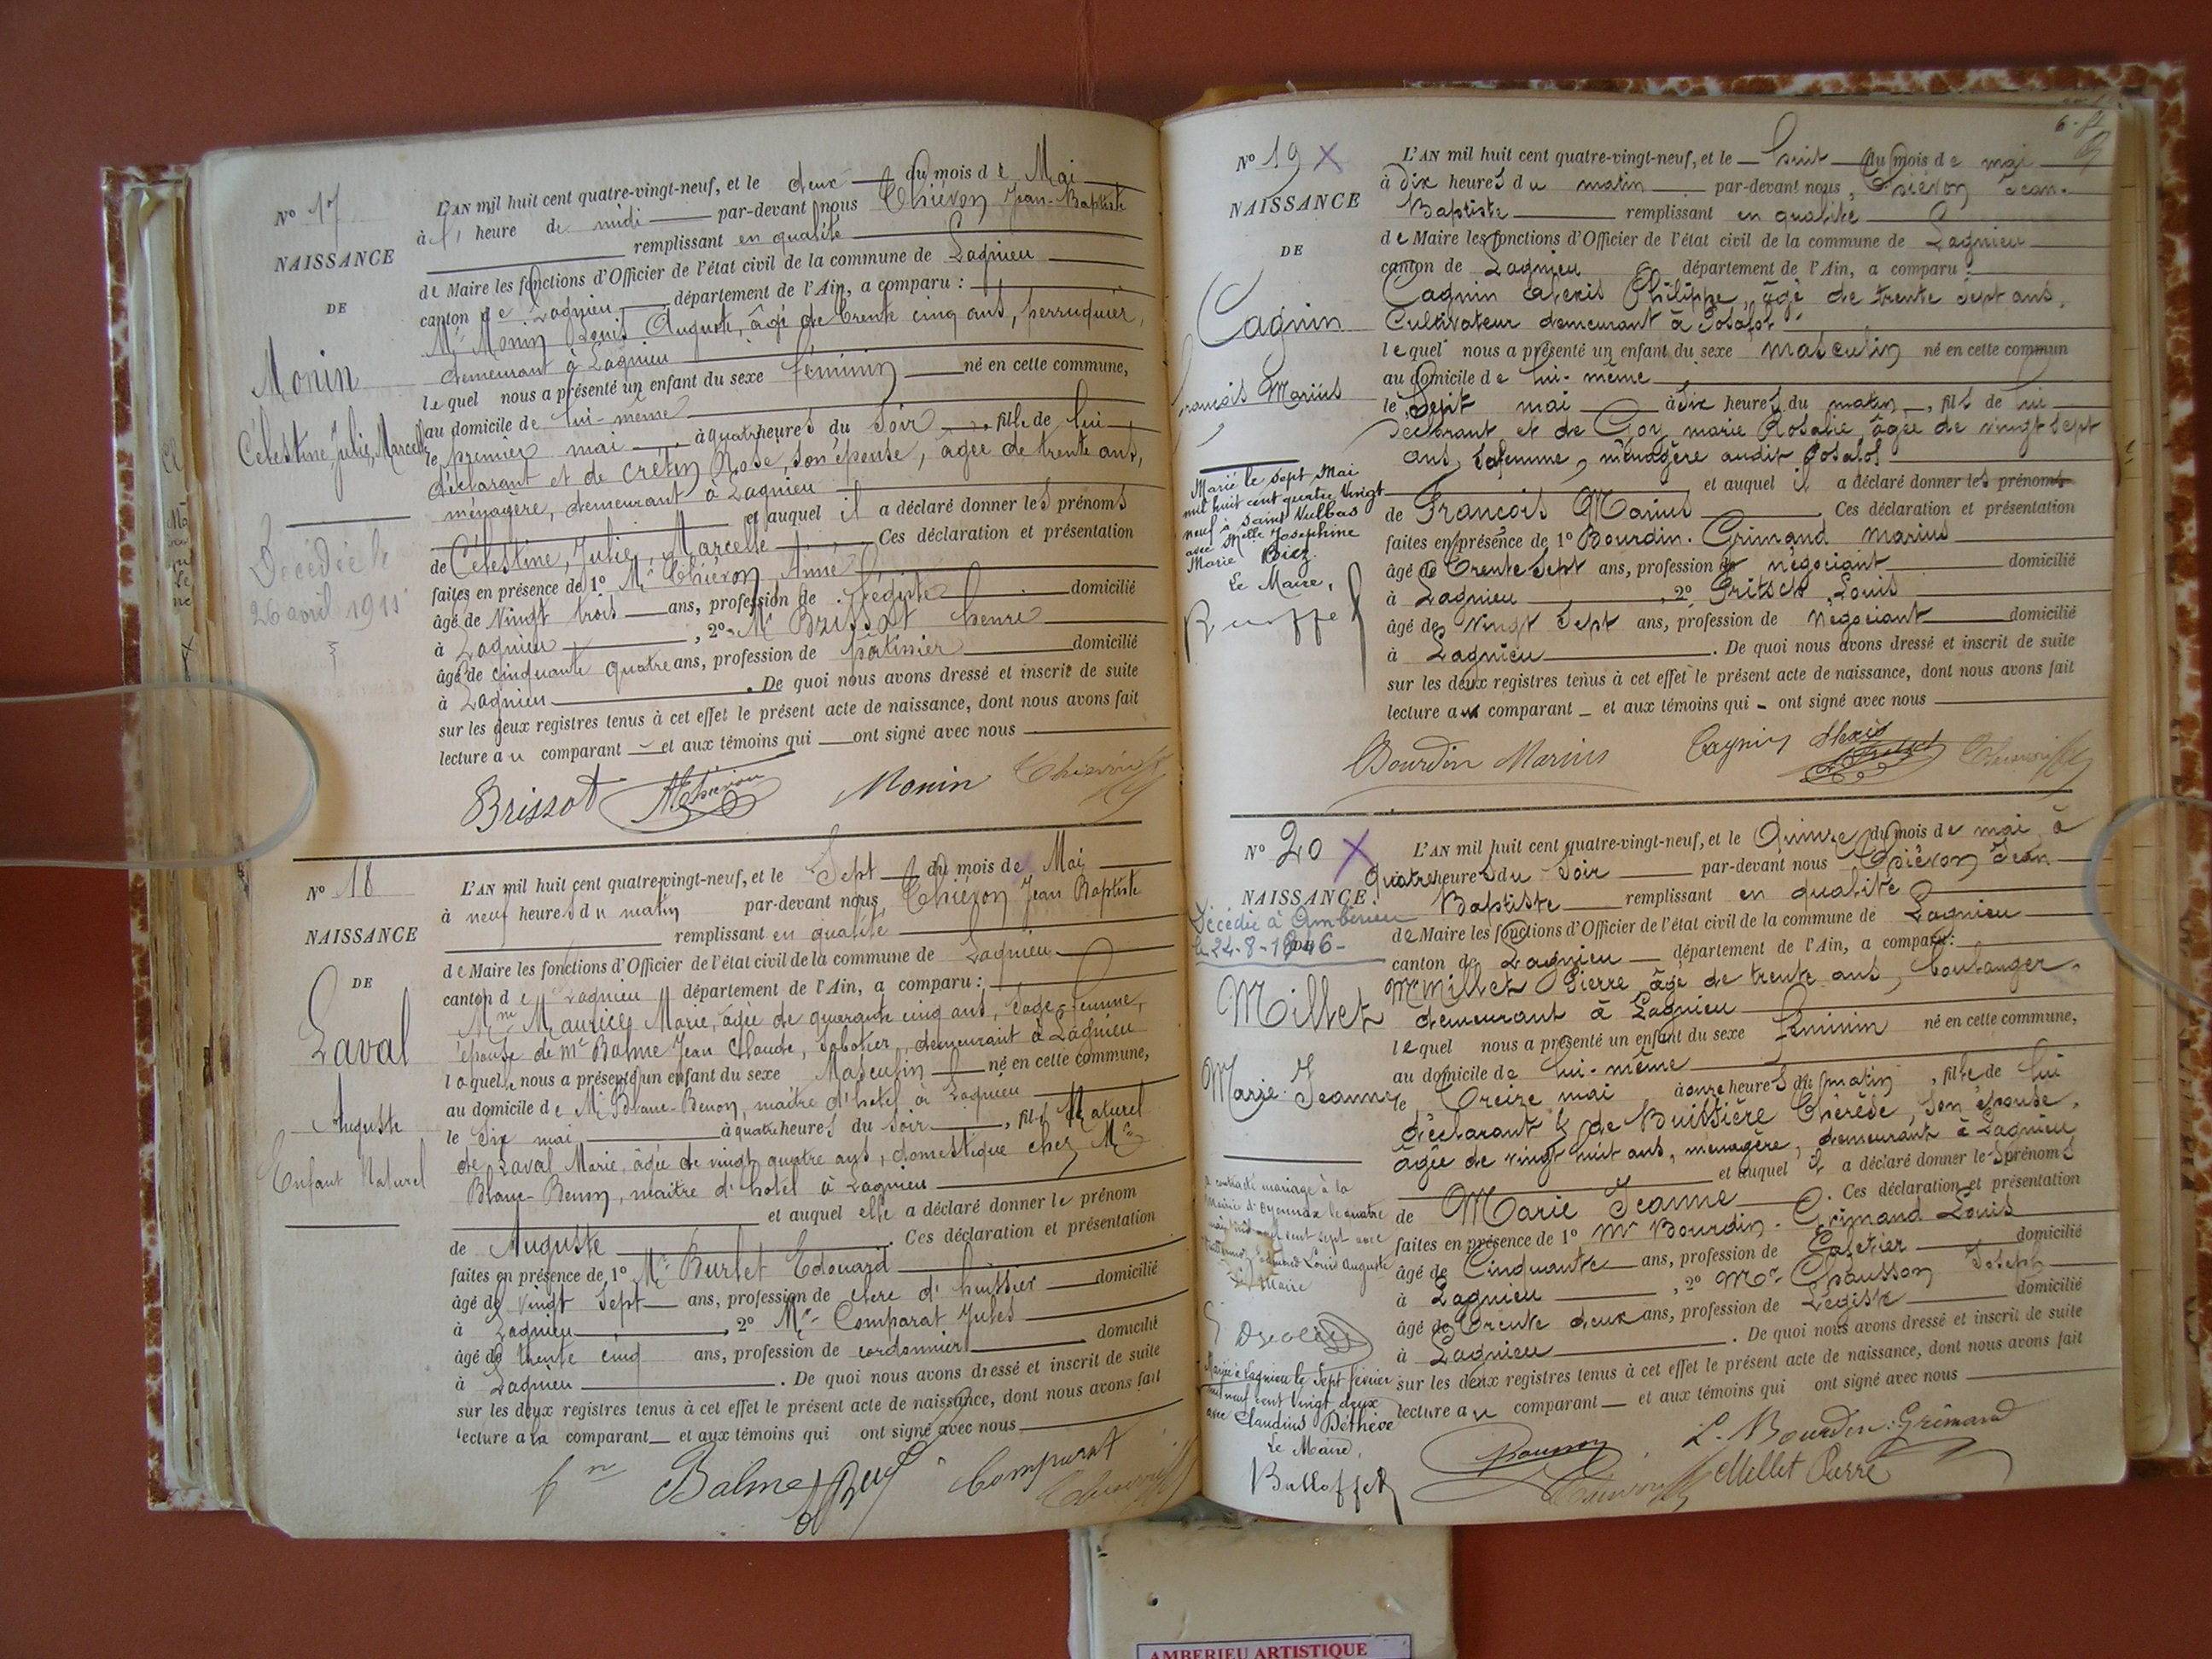 Nº 17
NAISSANCE
DE
Monin
Célestine, Julie, Marcelle
Décédée le
26 avril 1911
L'AN mil huit cent quatre-vingt-neuf, et le deux du mois de Mai
à 1 heure de midi par-devant nous Thiévon Jean-Baptiste
remplissant en qualité
de Maire les fonctions d'Officier de l'état civil de la commune de Lagnieu
canton de Lagnieu département de l'Ain, a comparu :
Mr Monin Louis Auguste, âgé de trente cinq ans, perruquier,
demeurant à Lagnieu
lequel nous a présenté un enfant du sexe féminin né en cette commune,
au domicile de lui-même
le premier mai, à quatre heures du soir, fille de lui
déclarant et de Cretin Rose, son épouse, âgée de trente ans,
ménagère, demeurant à Lagnieu
et auquel il a déclaré donner les prénoms
de Célestine, Julie, Marcelle Ces déclaration et présentation
faites en présence de 1º Mr Thiévon, Aimé
âgé de vingt trois ans, profession de Légiste domicilié
à Lagnieu, 2º Mr Brissot
âgé de cinquante quatre ans, profession de domicilié
à Lagnieu. De quoi nous avons dressé et inscrit de suite
sur les deux registres tenus à cet effet le présent acte de naissance, dont nous avons fait
lecture au comparant et aux témoins qui ont signé avec nous
Brissot AThiévon Monin Thiévon
Nº 18
NAISSANCE
DE
Laval
Auguste
Enfant Naturel
L'AN mil huit cent quatre-vingt-neuf, et le Sept du mois de Mai
à neuf heures du matin par-devant nous, Thiévon Jean Baptiste
remplissant en qualité
de Maire les fonctions d'Officier de l'état civil de la commune de Lagnieu
canton de Lagnieu département de l'Ain, a comparu :
Mme Maurice Marie, âgée de quarante cinq ans, sage-femme,
épouse de Mr Balme Jean Claude, sabotier, demeurant à Lagnieu
laquelle nous a présenté un enfant du sexe Masculin né en cette commune,
au domicile de Mr Blanc-Benon, maître d'hôtel à Lagnieu
le six mai à quatre heures du soir, fils Naturel
de Laval Marie, âgée de vingt quatre ans, domestique chez Mr
Blanc-Benon, maître d'hôtel à Lagnieu
et auquel elle a déclaré donner le prénom
de Auguste. Ces déclaration et présentation
faites en présence de 1º Mr Burlet Edouard
âgé de vingt sept ans, profession de clerc d'huissier domicilié
à Lagnieu, 2º Mr Comparat Jules
âgé de trente cinq ans, profession de cordonnier domicilié
à Lagnieu. De quoi nous avons dressé et inscrit de suite
sur les deux registres tenus à cet effet le présent acte de naissance, dont nous avons fait
lecture a la comparant et aux témoins qui ont signé avec nous
fme Balme Comparat Thiévon
Nº 19 X
NAISSANCE
DE
Cagnin
François Marius
Marié le sept Mai
mil huit cent quatre vingt
neuf à Saint Vulbas
avec Melle Joséphine
Marie Biez
Le Maire,
L'AN mil huit cent quatre-vingt-neuf, et le huit du mois de mai
à dix heures du matin par-devant nous, Thiévon Jean-
Baptiste remplissant en qualité
de Maire les fonctions d'Officier de l'état civil de la commune de Lagnieu
canton de Lagnieu département de l'Ain, a comparu :
Cagnin Alexis Philippe, âgé de trente sept ans,
Cultivateur demeurant à Posafol
lequel nous a présenté un enfant du sexe masculin né en cette commun
au domicile de lui-même
le Sept mai à dix heures du matin, fils de lui
déclarant et de Goy marie Rosalie, âgée de vingt sept
ans, sa femme, ménagère audit Posafol
et auquel il a déclaré donner les prénoms
de François Marius Ces déclaration et présentation
faites en présence de 1º Bourdin-Grimand Marius
âgé de trente sept ans, profession de négociant domicilié
à Lagnieu, 2º Fritsch Louis
âgé de vingt sept ans, profession de Négociant domicilié
à Lagnieu. De quoi nous avons dressé et inscrit de suite
sur les deux registres tenus à cet effet le présent acte de naissance, dont nous avons fait
lecture au comparant et aux témoins qui ont signé avec nous
Bourdin Marius Cagnin Alexis Thiévon
Nº 20 X
NAISSANCE
Décédée à Ambérieu
le 24-8-1946
Millet
Marie Jeanne
a contracté mariage à la
mairie d'Oyonnax le quatre
mai mil neuf cent sept avec
Louis Auguste
Le Maire
Mariée à Lagnieu le sept février
mil neuf cent vingt deux
avec Claudius Béthève
Le Maire,
Bulloffet
L'AN mil huit cent quatre-vingt-neuf, et le Quinze du mois de mai à
quatre heures du soir par-devant nous Thiévon Jean
Baptiste remplissant en qualité
de Maire les fonctions d'Officier de l'état civil de la commune de Lagnieu
canton de Lagnieu département de l'Ain, a comparu :
Mr Millet Pierre âgé de trente ans, boulanger,
demeurant à Lagnieu
lequel nous a présenté un enfant du sexe féminin né en cette commune,
au domicile de lui-même
le Treize mai à onze heures du matin, fille de lui
déclarant & de Buissière Thérèse, son épouse,
âgée de vingt huit ans, ménagère, demeurant à Lagnieu
et auquel il a déclaré donner les prénoms
de Marie Jeanne. Ces déclaration et présentation
faites en présence de 1º Mr Bourdin-Grimand Louis
âgé de Cinquante ans, profession de Cafetier domicilié
à Lagnieu, 2º Mr Chausson Joseph
âgé de trente deux ans, profession de Légiste domicilié
à Lagnieu. De quoi nous avons dressé et inscrit de suite
sur les deux registres tenus à cet effet le présent acte de naissance, dont nous avons fait
lecture au comparant et aux témoins qui ont signé avec nous
Chausson L. Bourdin-Grimand
Thiévon Millet Pierre
AMBERIEU ARTISTIQUE